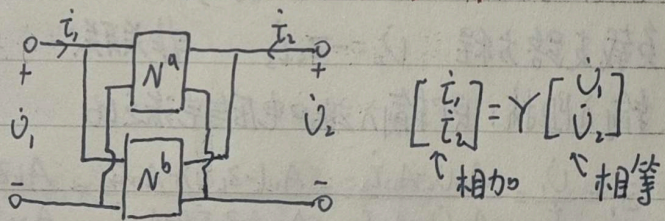 i̇₁ Nᵃ i̇₂
+ +
U̇₁ U̇₂
Nᵇ
- -
[i̇₁ i̇₂] = Y [U̇₁ U̇₂]
↑相加 ↑相等